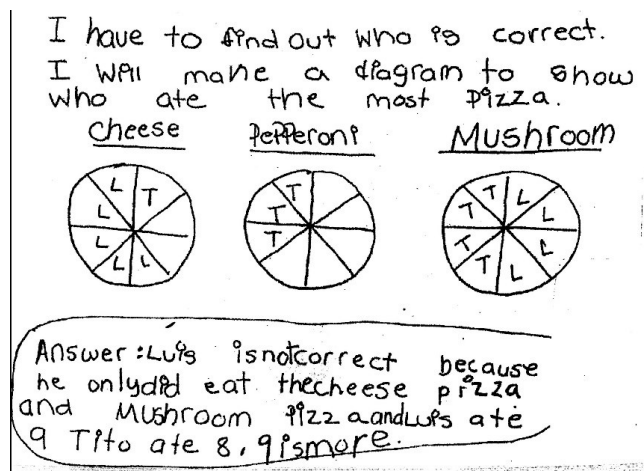 I have to find out who is correct.
I will make a diagram to show
who ate the most pizza.
Cheese Pepperoni Mushroom
L T T T T L
L T T L
L T T L
L L T L
Answer: Luis isnotcorrect because
he onlydid eat thecheese pizza
and Mushroom pizzaandLuis ate
9 Tito ate 8, 9ismore.